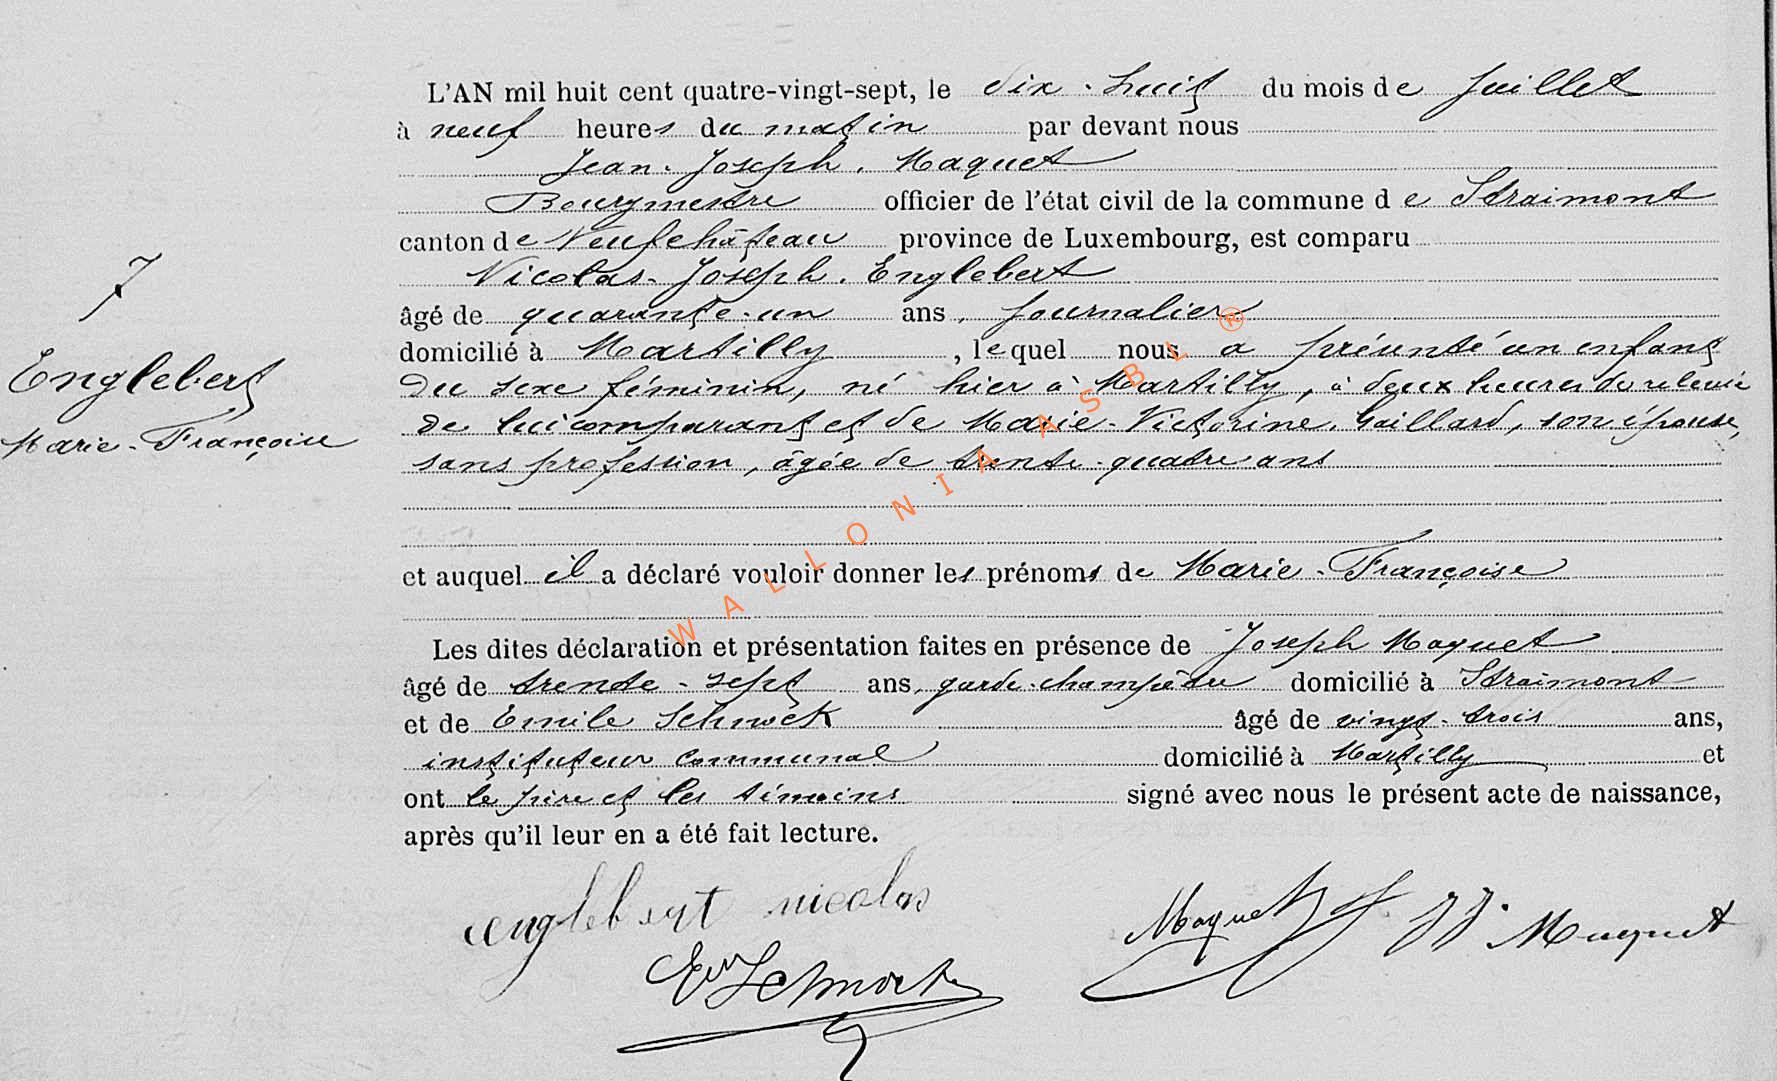 L'AN mil huit cent quatre-vingt-sept, le dix-huit du mois de Juillet
à neuf heures du matin par devant nous
Jean-Joseph Maquet
Bourgmestre officier de l'état civil de la commune de Straimont
canton de Neufchâteau province de Luxembourg, est comparu
Nicolas-Joseph Englebert
âgé de quarante-un ans, journalier
domicilié à Martilly, lequel nous a présenté un enfant
du sexe féminin, né hier à Martilly, à deux heures de relevée
de lui comparant et de Marie-Victorine Gaillard, son épouse,
sans profession, âgée de trente-quatre ans
et auquel il a déclaré vouloir donner les prénoms de Marie-Françoise
Les dites déclaration et présentation faites en présence de Joseph Maquet
âgé de trente-sept ans, garde-champêtre domicilié à Straimont
et de Emile âgé de vingt-trois ans,
instituteur communal domicilié à Martilly et
ont le père et les témoins signé avec nous le présent acte de naissance,
après qu'il leur en a été fait lecture.
7
Englebert
Marie-Françoise
englebert nicolas
Maquet J J. Maquet
WALLONIA ASBL ®